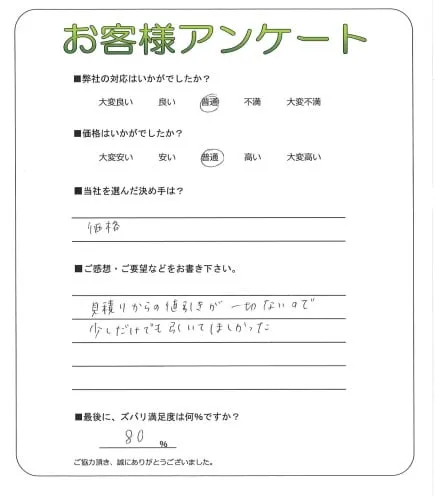 お客様アンケート
■弊社の対応はいかがでしたか？
大変良い 良い 普通 不満 大変不満
■価格はいかがでしたか？
大変安い 安い 普通 高い 大変高い
■当社を選んだ決め手は？
価格
■ご感想・ご要望などをお書き下さい。
見積りからの値引きが一切ないので
少しだけでも引いてほしかった
■最後に、ズバリ満足度は何%ですか？
80 %
ご協力頂き、誠にありがとうございました。